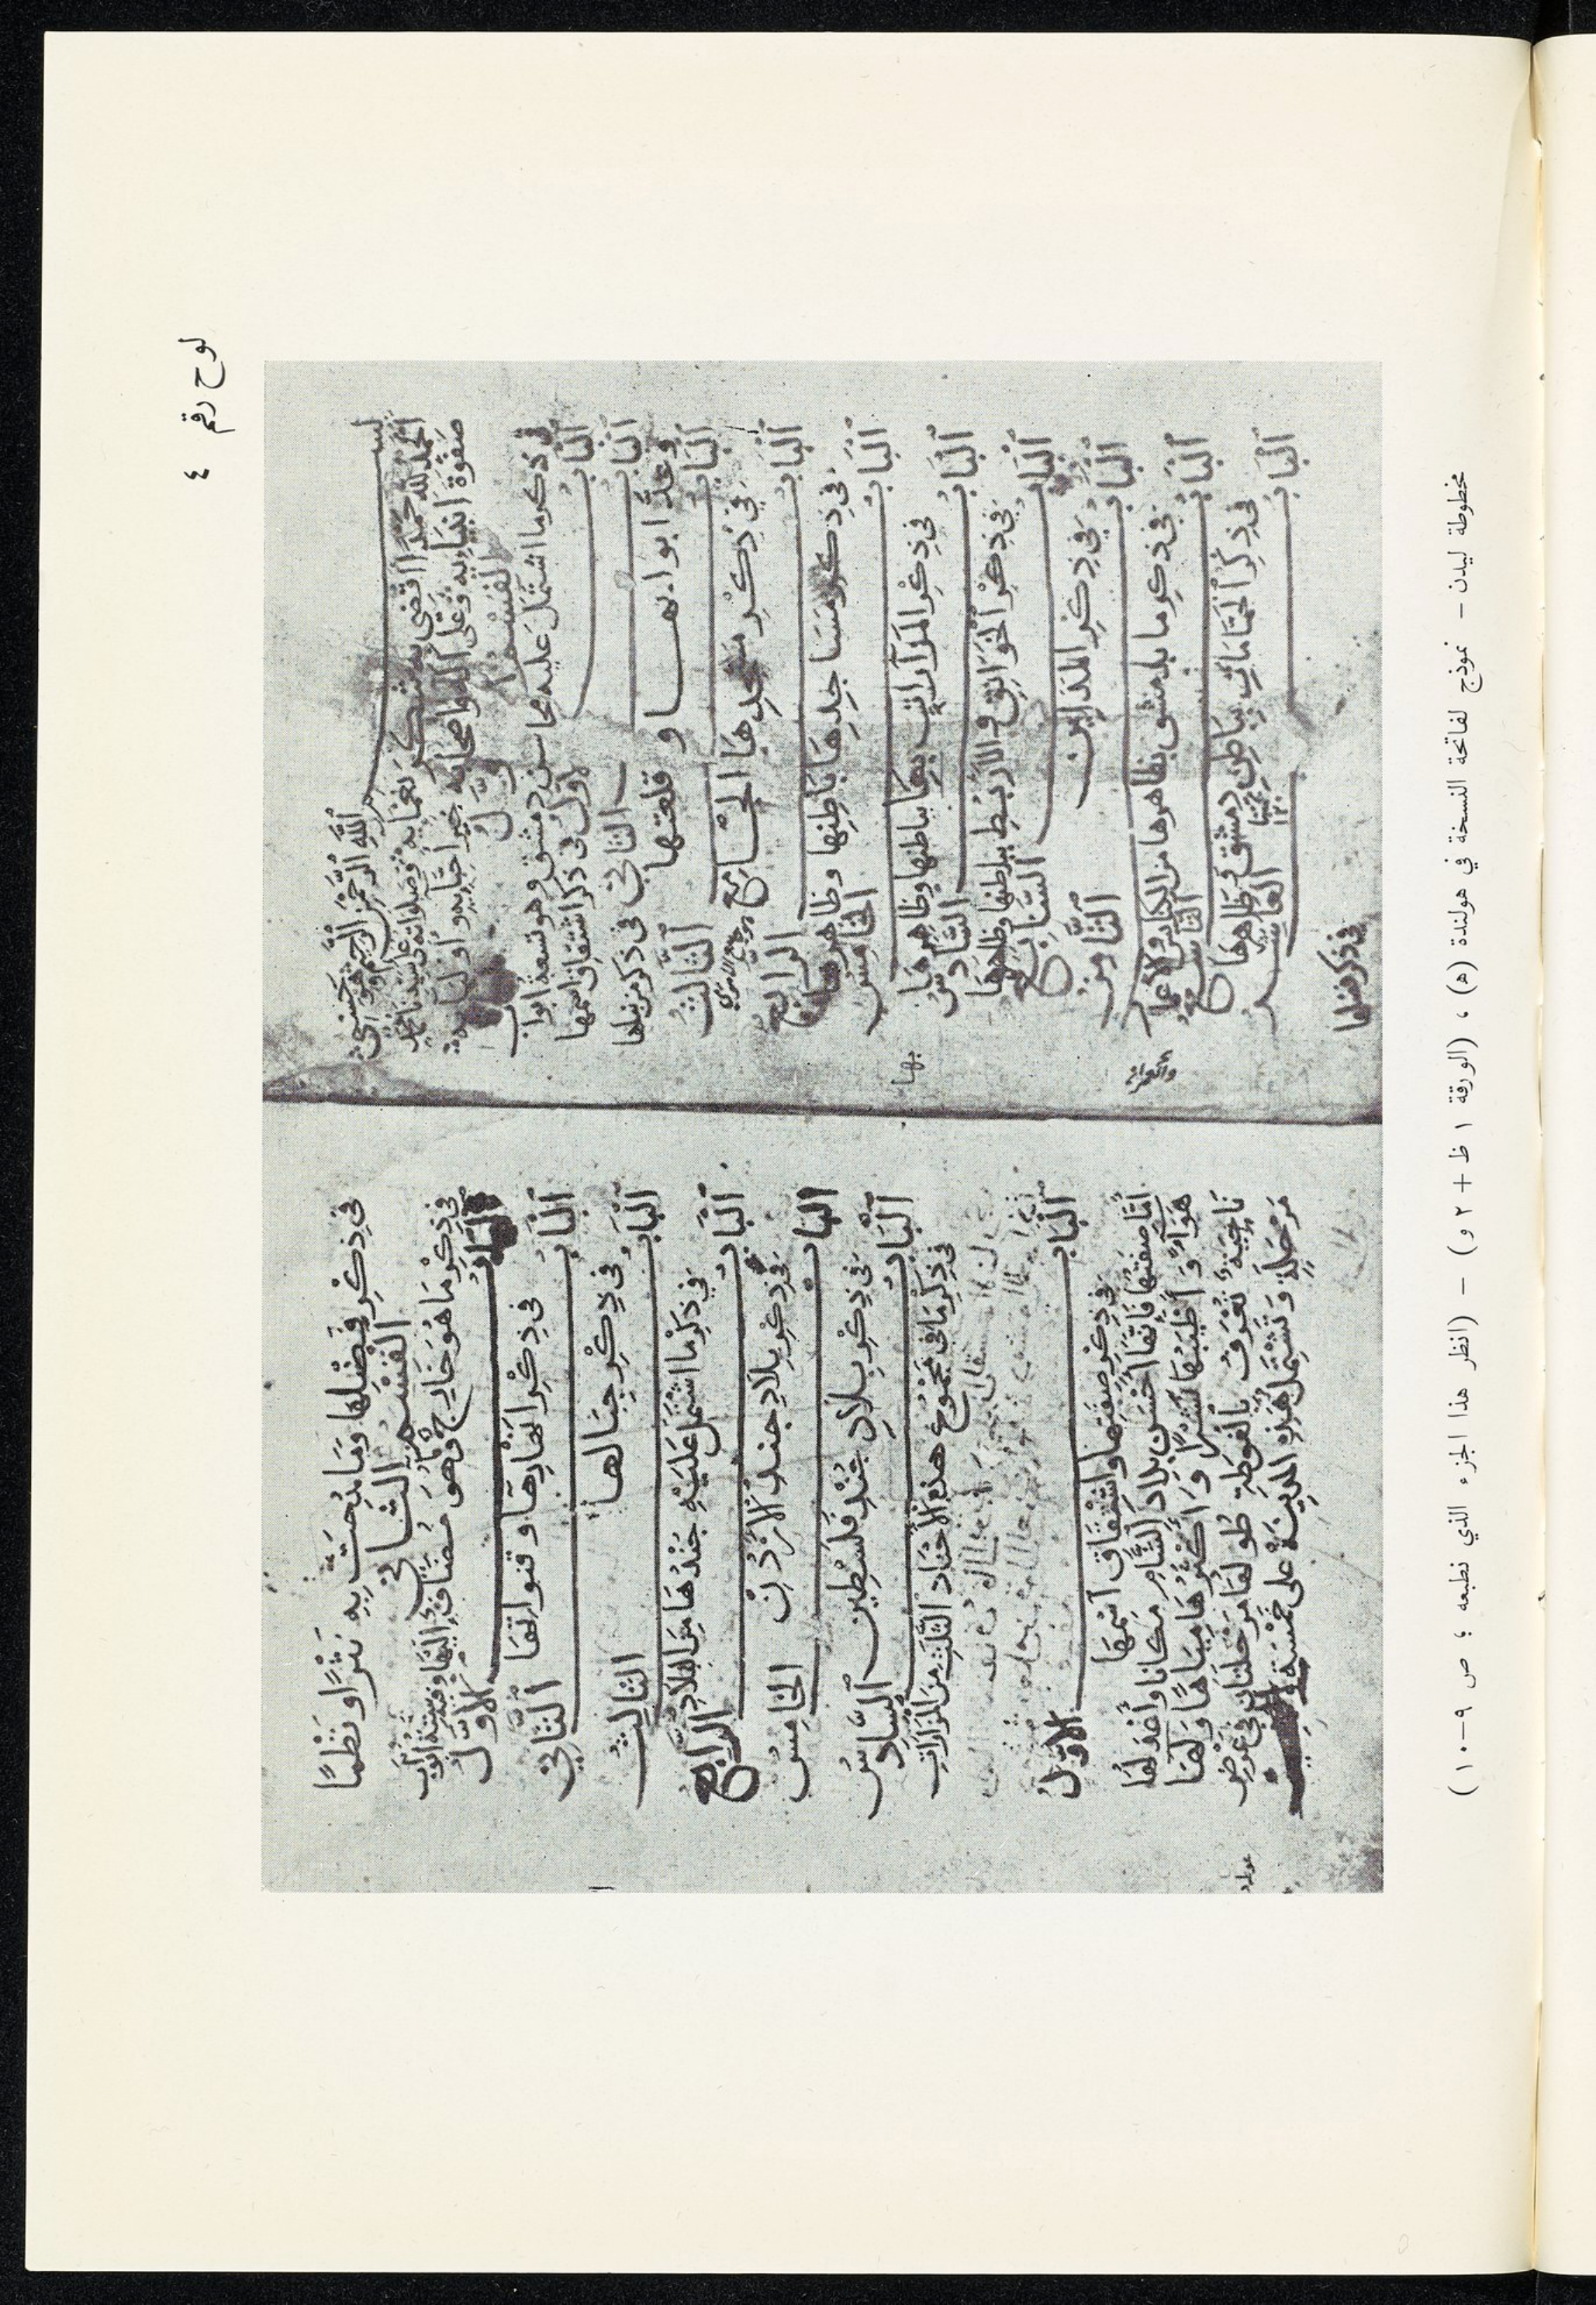 لوح رقم ٤
بسم الله الرحمن الرحيم
الحمد لله حمدا اقضى به شكر نعمايه وصلواته على سيدنا محمد
صفوة انبيايه وعلى آله واصحابه خير احبايه واوليايه
القسم الاول
في ذكر ما اشتمل عليه محاسن دمشق وهو تسعة ابواب
الباب الاول في ذكر اشتقاق اسمها
الباب الثاني في ذكر من بناها
وعدد ابوابها وقلعتها
الباب الثالث
في ذكر مسجدها الجامع
الباب الرابع
في ذكر مساجدها باطنها وظاهرها
الباب الخامس
في ذكر المزارات بباطنها وظاهرها
بها
الباب السادس
في ذكر الخوانق والربط بباطنها وظاهرها
الباب السابع
في ذكر المدارس
الباب الثامن
في ذكر ما بدمشق بظاهرها من الكنايس والاعمار
الباب التاسع
في ذكر الحمامات بباطن دمشق وظاهرها
الباب العاشر
في ذكر فضلها
في ذكر فضلها وما مدحت به نثرا ونظما
القسم الثاني
في ذكر ما هو خارج وهو مضاف اليها وفيه ستة ابواب
الباب الاول
في ذكر انهارها وقنواتها
الباب الثاني
في ذكر جبالها
الباب الثالث
في ذكر ما اشتمل عليه جندها من البلاد
الباب الرابع
في ذكر بلاد جند الاردن
الباب الخامس
في ذكر بلاد جند فلسطين
الباب السادس
في ذكر ما في مجموع هذه الاجناد الثلث من المزارات
الباب الاول
في ذكر صفتها واشتقاق اسمها
امّا صفتها فانها احسن بلاد الشام مكانا واعدلها
هواء واطيبها نشرا واكثرها مياها ولها
ناحية تعرف بالغوطة طولها مرحلتان في عرض
مرحلة وتشتمل هذه المدينة على خمسة
مخطوطة ليدن - نموذج لفاتحة النسخة في هولندة (ه) ، (الورقة ١ ظ + ٢ و) - (انظر هذا الجزء الذي نطبعه ؛ ص ٩-١٠)